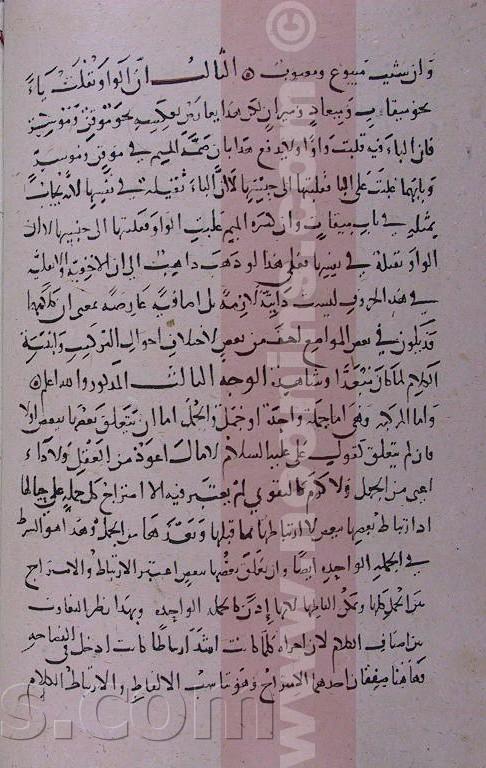 وان شيت مبيوع ومعيوب ه الثالث ان الواو نقلت ياءً
نحو ميقات وميعاد وميزان لكن هذا يعارض بعكسه نحو موقن وموسر
فان الياء فيه قلبت واوا ولا يدفع هذا بان ضمة الميم في موقن وموسر
وبابهما غلبت على اليا فقلبتها الى جنسها لا لان الياء ثقيلة في نفسها لانه يجاب
بمثله في باب ميقات وان كسرة الميم غلبت الواو فقلبتها الى جنسها لا لان
الواو ثقيلة في نفسها فعلى هذا لو ذهب ذاهب الى ان الاخفية والاثقلية
في هذه الحروف ليست ذاتية لازمة بل اضافية عارضة بمعنى ان كلا منهما
قد يكون في بعض المواضع اخف من بعض لاختلاف احوال التركيب وابنية
الكلام لما كان مبعدا وشاهده الوجه الثالث المذكور والله اعلم ه
واما المركبه وهي اما جملة واحدة او جمل والجمل اما ان يتعلق بعضها ببعض اولا
فان لم يتعلق كقول علي عليه السلام لا مال اعود من العقل ولا داء
اعيى من الجهل ولا كرم كالتقوى لم يعتبر فيه الا امتزاج كل جملة على حالها
اذ ارتباط بعضها ببعض لا ارتباطها بما قبلها وبعدها من الجمل وهذا هو الشرط
في الجملة الواحده ايضا وان تعلق بعضها ببعض اعتبر الارتباط والامتزاج
بين الجمل كلها وبين الفاظها لانها اذن كالجملة الواحده وبهذا يظهر التفاوت
بين اصناف الكلام لان اجزاه كلما كانت اشد ارتباطا كانت ادخل في الفصاحه
فهاهنا صفتان احدهما الامتزاج وهو تناسب الالفاظ والارتباط الكلام
www.
s.com
©